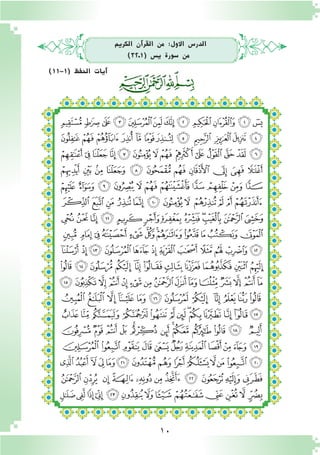 الدرس الاول: من القرآن الكريم
من سورة يس (١-٢٣)
آيات الحفظ (١-١١)
بِسْمِ اللَّهِ الرَّحْمَٰنِ الرَّحِيمِ
يسٓ ١ وَٱلْقُرْءَانِ ٱلْحَكِيمِ ٢ إِنَّكَ لَمِنَ ٱلْمُرْسَلِينَ ٣ عَلَىٰ صِرَٰطٍ مُّسْتَقِيمٍ
٤ تَنزِيلَ ٱلْعَزِيزِ ٱلرَّحِيمِ ٥ لِتُنذِرَ قَوْمًا مَّآ أُنذِرَ ءَابَآؤُهُمْ فَهُمْ غَٰفِلُونَ
٦ لَقَدْ حَقَّ ٱلْقَوْلُ عَلَىٰٓ أَكْثَرِهِمْ فَهُمْ لَا يُؤْمِنُونَ ٧ إِنَّا جَعَلْنَا فِىٓ أَعْنَٰقِهِمْ
أَغْلَٰلًا فَهِىَ إِلَى ٱلْأَذْقَانِ فَهُم مُّقْمَحُونَ ٨ وَجَعَلْنَا مِنۢ بَيْنِ أَيْدِيهِمْ
سَدًّا وَمِنْ خَلْفِهِمْ سَدًّا فَأَغْشَيْنَٰهُمْ فَهُمْ لَا يُبْصِرُونَ ٩ وَسَوَآءٌ عَلَيْهِمْ
ءَأَنذَرْتَهُمْ أَمْ لَمْ تُنذِرْهُمْ لَا يُؤْمِنُونَ ١٠ إِنَّمَا تُنذِرُ مَنِ ٱتَّبَعَ ٱلذِّكْرَ
وَخَشِىَ ٱلرَّحْمَٰنَ بِٱلْغَيْبِ فَبَشِّرْهُ بِمَغْفِرَةٍ وَأَجْرٍ كَرِيمٍ ١١ إِنَّا نَحْنُ نُحْىِ
ٱلْمَوْتَىٰ وَنَكْتُبُ مَا قَدَّمُوا۟ وَءَاثَٰرَهُمْ وَكُلَّ شَىْءٍ أَحْصَيْنَٰهُ فِىٓ إِمَامٍ مُّبِينٍ
١٢ وَٱضْرِبْ لَهُم مَّثَلًا أَصْحَٰبَ ٱلْقَرْيَةِ إِذْ جَآءَهَا ٱلْمُرْسَلُونَ ١٣ إِذْ أَرْسَلْنَآ
إِلَيْهِمُ ٱثْنَيْنِ فَكَذَّبُوهُمَا فَعَزَّزْنَا بِثَالِثٍ فَقَالُوٓا۟ إِنَّآ إِلَيْكُم مُّرْسَلُونَ ١٤ قَالُوا۟
مَآ أَنتُمْ إِلَّا بَشَرٌ مِّثْلُنَا وَمَآ أَنزَلَ ٱلرَّحْمَٰنُ مِن شَىْءٍ إِنْ أَنتُمْ إِلَّا تَكْذِبُونَ ١٥
قَالُوا۟ رَبُّنَا يَعْلَمُ إِنَّآ إِلَيْكُمْ لَمُرْسَلُونَ ١٦ وَمَا عَلَيْنَآ إِلَّا ٱلْبَلَٰغُ ٱلْمُبِينُ
١٧ قَالُوٓا۟ إِنَّا تَطَيَّرْنَا بِكُمْ لَئِن لَّمْ تَنتَهُوا۟ لَنَرْجُمَنَّكُمْ وَلَيَمَسَّنَّكُم مِّنَّا عَذَابٌ
أَلِيمٌ ١٨ قَالُوا۟ طَٰٓئِرُكُم مَّعَكُمْ أَئِن ذُكِّرْتُم بَلْ أَنتُمْ قَوْمٌ مُّسْرِفُونَ
١٩ وَجَآءَ مِنْ أَقْصَا ٱلْمَدِينَةِ رَجُلٌ يَسْعَىٰ قَالَ يَٰقَوْمِ ٱتَّبِعُوا۟ ٱلْمُرْسَلِينَ
٢٠ ٱتَّبِعُوا۟ مَن لَّا يَسْـَٔلُكُمْ أَجْرًا وَهُم مُّهْتَدُونَ ٢١ وَمَا لِىَ لَآ أَعْبُدُ ٱلَّذِى
فَطَرَنِى وَإِلَيْهِ تُرْجَعُونَ ٢٢ ءَأَتَّخِذُ مِن دُونِهِۦٓ ءَالِهَةً إِن يُرِدْنِ ٱلرَّحْمَٰنُ
بِضُرٍّ لَّا تُغْنِ عَنِّى شَفَٰعَتُهُمْ شَيْـًٔا وَلَا يُنقِذُونِ ٢٣ إِنِّىٓ إِذًا لَّفِى ضَلَٰلٍ
١٠